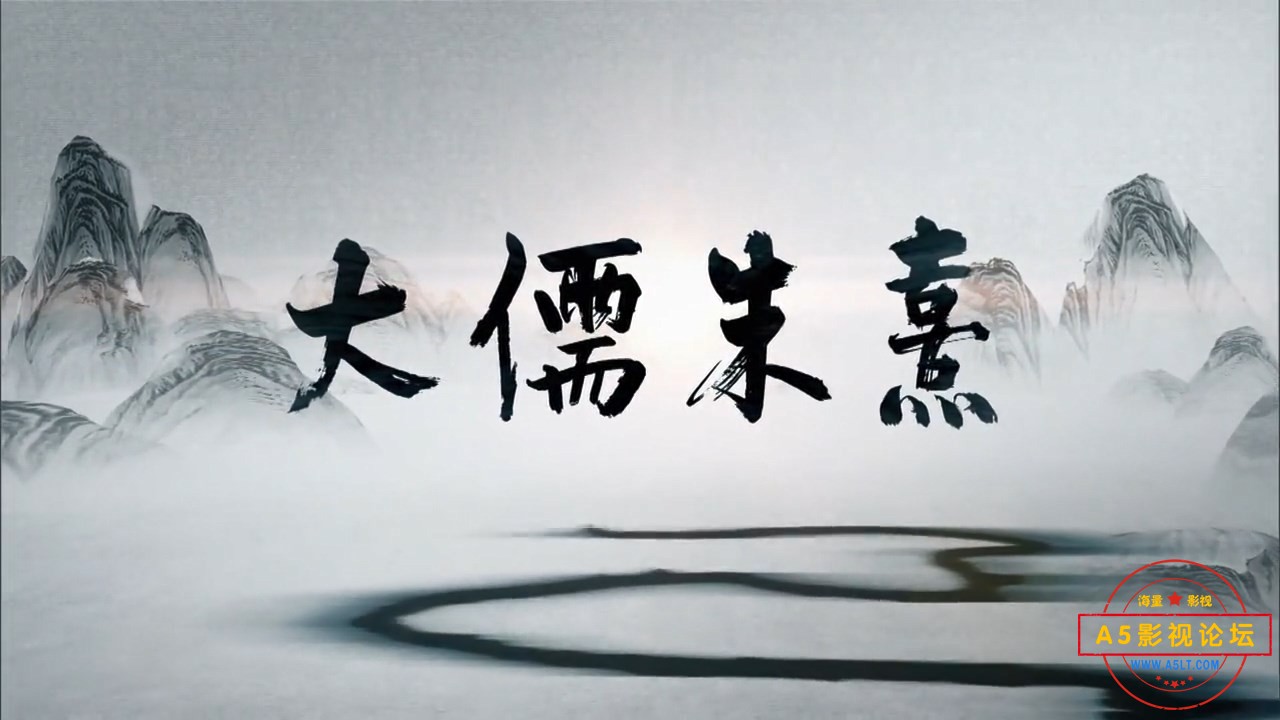 大儒朱熹
海量★影视
A5影视论坛
WWW.A5LT.COM